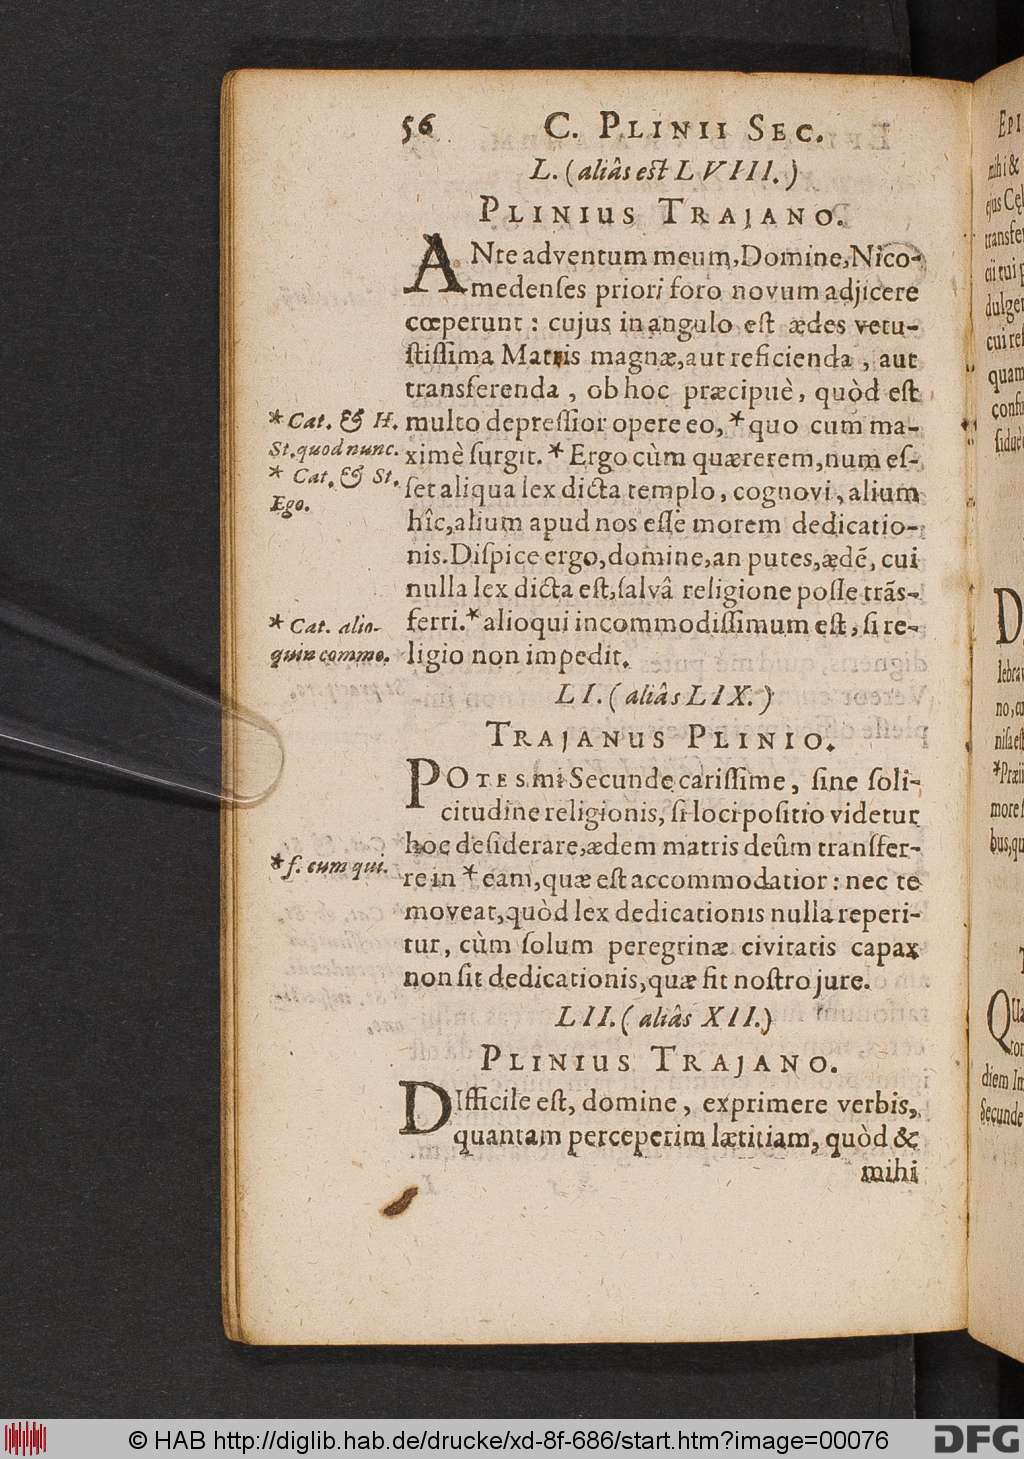 56 C. PLINII SEC.
L. (aliâs est LVIII.)
PLINIUS TRAJANO.
ANte adventum meum, Domine, Nico-
medenſes priori foro novum adjicere
cœperunt : cujus in angulo eſt ædes vetu-
ſtiſſima Matris magnæ, aut reficienda , aut
transferenda , ob hoc præcipuè, quòd eſt
* Cat. & H. multo depreſſior opere eo, * quo cum ma-
St. quod nunc. ximè ſurgit. * Ergo cùm quærerem, num eſ-
* Cat. & St. ſet aliqua lex dicta templo, cognovi, alium
Ego. hîc, alium apud nos eſſe morem dedicatio-
nis. Diſpice ergo, domine, an putes, ædē, cui
nulla lex dicta eſt, ſalvâ religione poſſe trãſ-
* Cat. alio- ferri. * alioqui incommodiſſimum eſt, ſi re-
quin commo. ligio non impedit.
LI. (aliâs LIX.)
TRAJANUS PLINIO.
POTES mi Secunde cariſſime, ſine ſoli-
citudine religionis, ſi loci poſitio videtur
hoc deſiderare, ædem matris deûm transfer-
* f. cum qui. re in * eam, quæ eſt accommodatior : nec te
moveat, quòd lex dedicationis nulla reperi-
tur, cùm ſolum peregrinæ civitatis capax
non ſit dedicationis, quæ fit noſtro jure.
LII. (aliâs XII.)
PLINIUS TRAJANO.
DIfficile eſt, domine, exprimere verbis,
quantam perceperim lætitiam, quòd &
mihi
© HAB http://diglib.hab.de/drucke/xd-8f-686/start.htm?image=00076
DFG